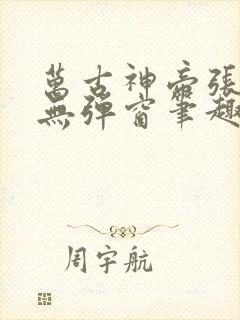 萬古神帝張
無彈窗筆趣
周宇航